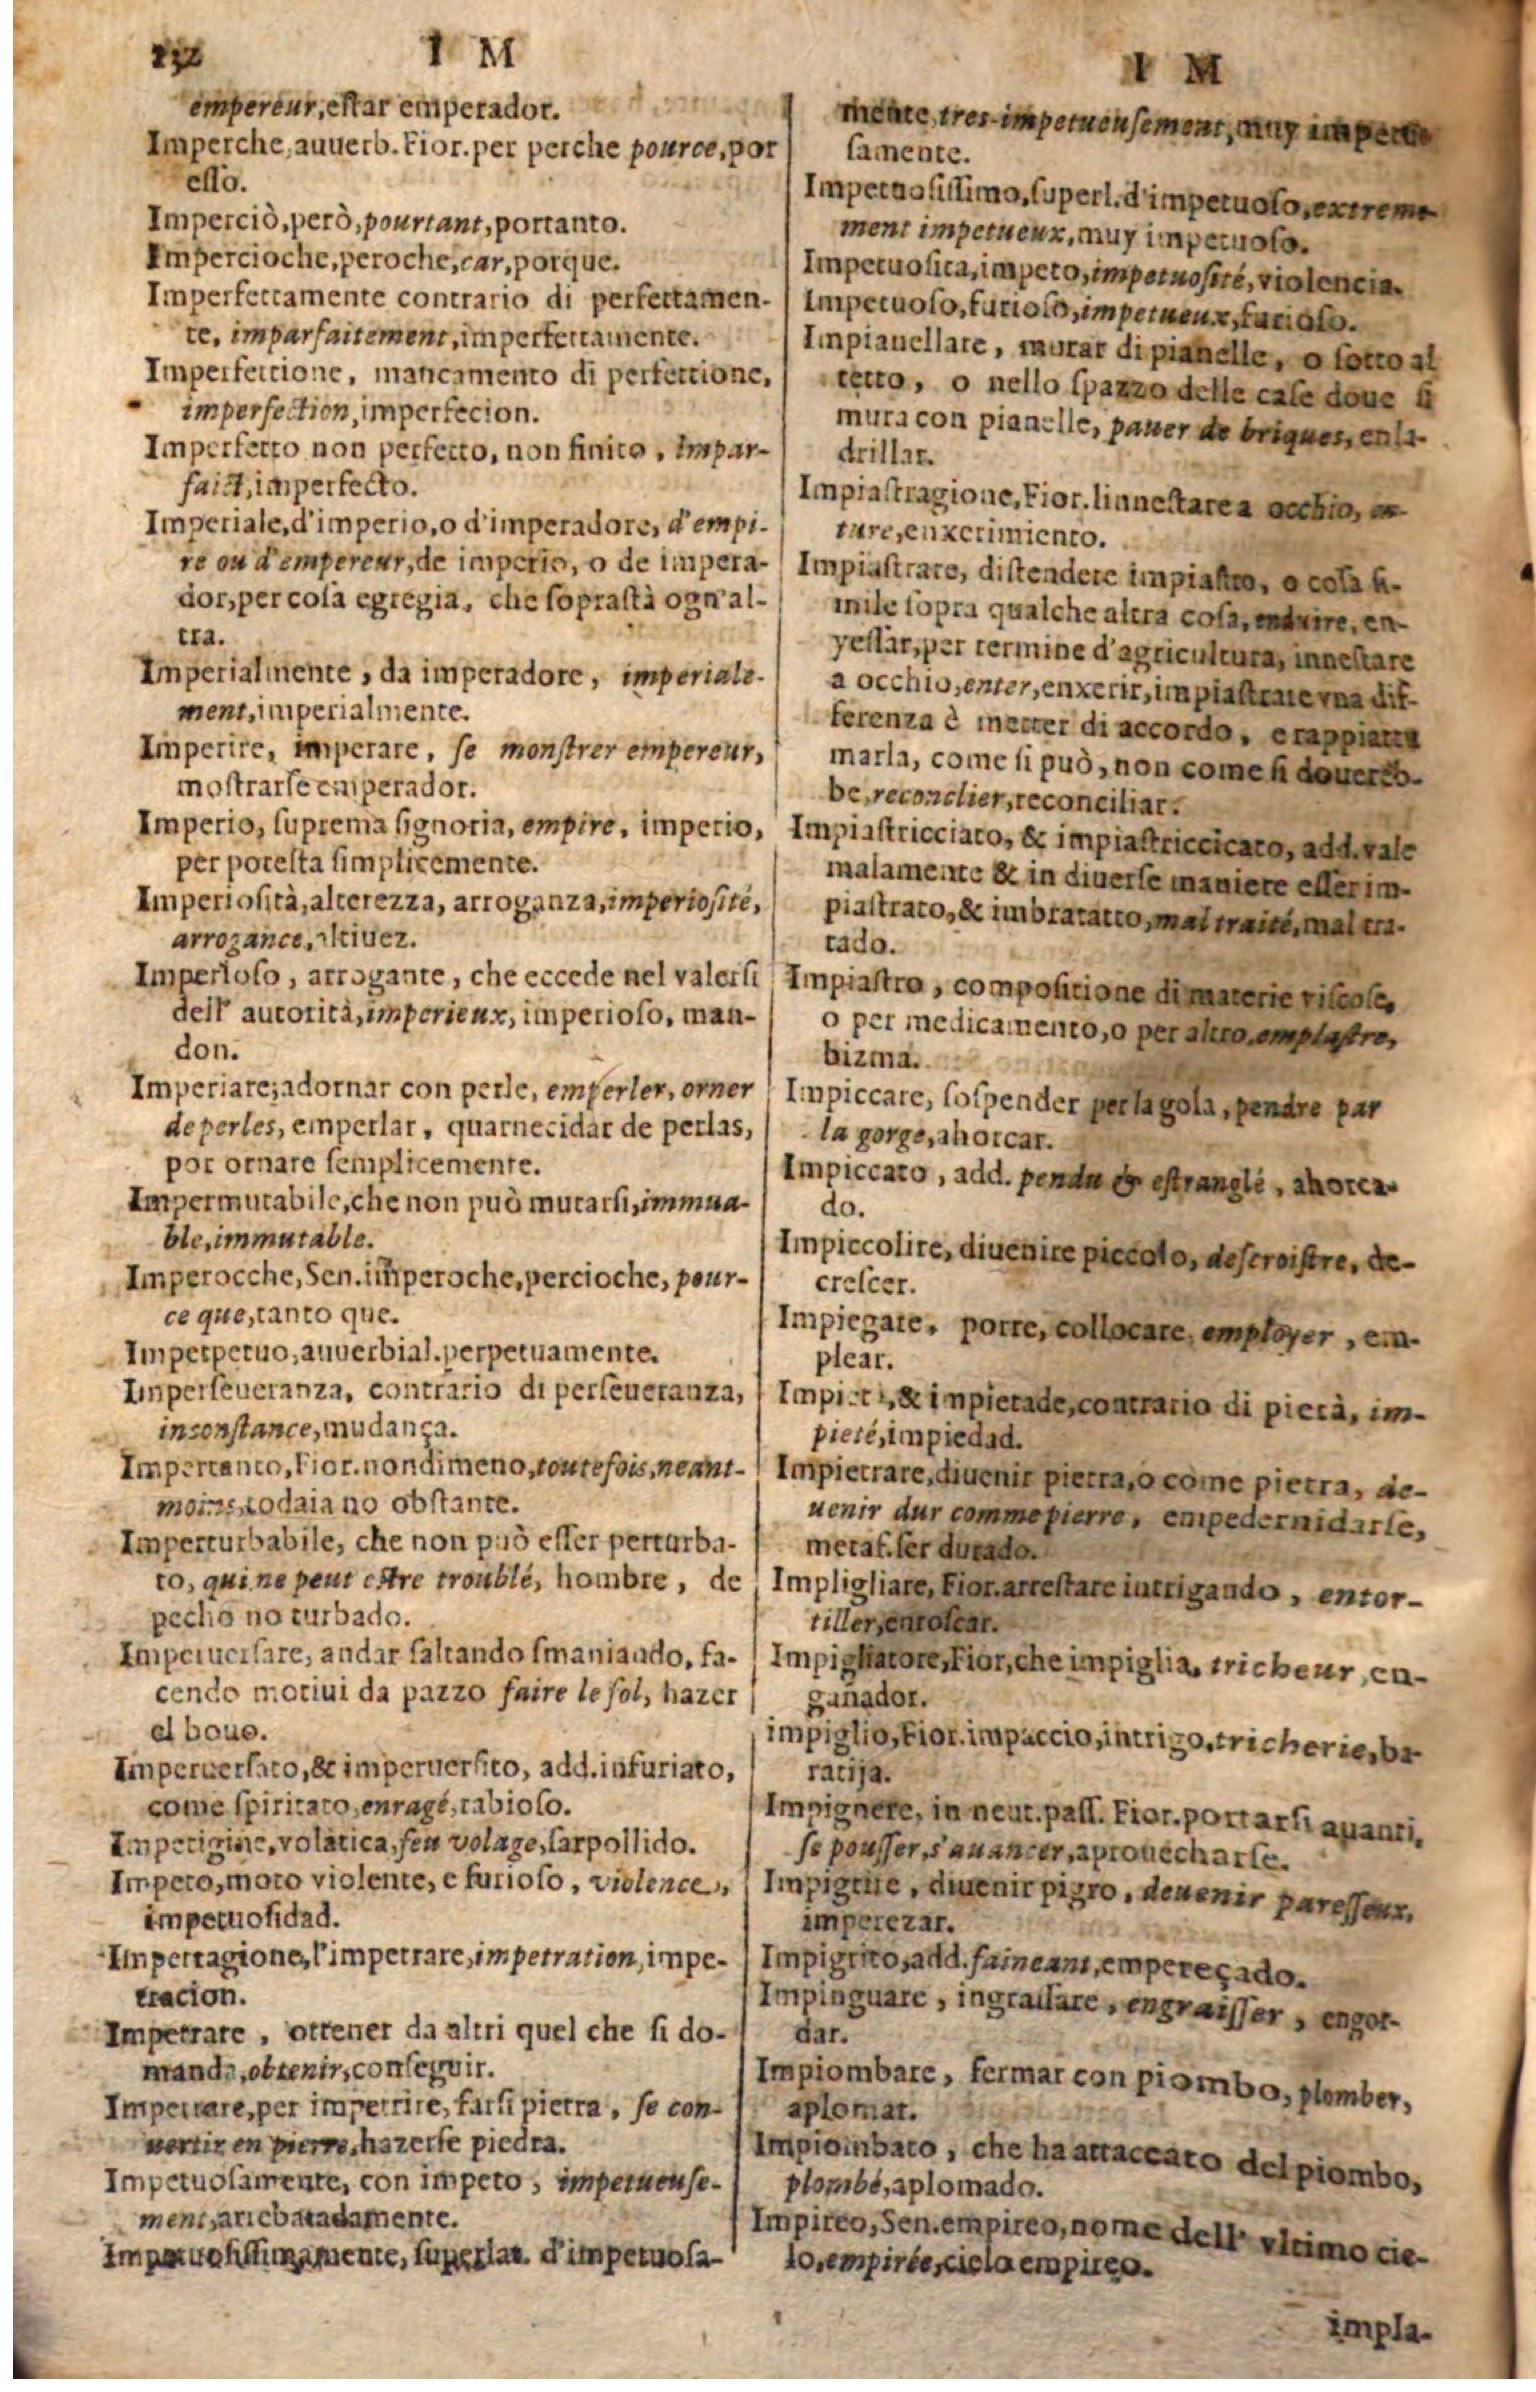 232 I M
empereur, eſtar emperador.
Imperche, auuerb. Fior. per perche pource, por
eſſo.
Imperciò, però, pourtant, portanto.
Impercioche, peroche, car, porque.
Imperfettamente contrario di perfettamen-
te, imparfaitement, imperfettamente.
Imperfettione, mancamento di perfettione,
imperfection, imperfecion.
Imperfetto non perfetto, non finito, Impar-
faict, imperfecto.
Imperiale, d'imperio, o d'imperadore, d'empi-
re ou d'empereur, de imperio, o de impera-
dor, per coſa egregia, che ſopraſtà ogn'al-
tra.
Imperialmente, da imperadore, imperiale-
ment, imperialmente.
Imperire, imperare, ſe monſtrer empereur,
moſtrarſe emperador.
Imperio, ſuprema ſignoria, empire, imperio,
per poteſta ſimplicemente.
Imperioſità, alterezza, arroganza, imperioſité,
arrogance, altiuez.
Imperioſo, arrogante, che eccede nel valerſi
dell' autorità, imperieux, imperioſo, man-
don.
Imperiare; adornar con perle, emperler, orner
de perles, emperlar, quarnecidar de perlas,
por ornare ſemplicemente.
Impermutabile, che non può mutarſi, immua-
ble, immutable.
Imperocche, Sen. imperoche, percioche, pour-
ce que, tanto que.
Imperpetuo, auuerbial. perpetuamente.
Imperſeueranza, contrario di perſeueranza,
inconſtance, mudança.
Impertanto, Fior. nondimeno, toutefois, neant-
moins, todaia no obſtante.
Imperturbabile, che non può eſſer perturba-
to, qui ne peut eſtre troublé, hombre, de
pecho no turbado.
Imperuerſare, andar ſaltando ſmaniando, fa-
cendo motiui da pazzo faire le fol, hazer
el bouo.
Imperuerſato, & imperuerſito, add. infuriato,
come ſpiritato, enragé, rabioſo.
Impetigine, volatica, feu volage, ſarpollido.
Impeto, moto violente, e furioſo, violence,
impetuoſidad.
Impetragione, l'impetrare, impetration, impe-
tracion.
Impetrare, ottener da altri quel che ſi do-
manda, obtenir, conſeguir.
Impetrare, per impetrire, farſi pietra, ſe con-
uertir en pierre, hazerſe piedra.
Impetuoſamente, con impeto, impetueuſe-
ment, arrebatadamente.
Impetuoſiſſimamente, ſuperlat. d'impetuoſa-
I M
mente, tres-impetueuſement, muy
ſamente.
Impetuoſiſſimo, ſuperl. d'impetuoſo, extreme-
ment impetueux, muy impetuoſo.
Impetuoſita, impeto, impetuoſité, violencia.
Impetuoſo, furioſo, impetueux, furioſo.
Impianellare, murar di pianelle, o ſotto al
tetto, o nello ſpazzo delle caſe doue ſi
mura con pianelle, pauer de briques, enla-
drillar.
Impiaſtragione, Fior. linneſtare a occhio, en-
ture, enxerimiento.
Impiaſtrare, diſtendere impiaſtro, o coſa ſi-
mile ſopra qualche altra coſa, enduire, en-
yeſſar, per termine d'agricultura, inneſtare
a occhio, enter, enxerir, impiaſtrare vna dif-
ferenza è metter di accordo, e rappiatta
marla, come ſi può, non come ſi douereb-
be, reconclier, reconciliar.
Impiaſtricciato, & impiaſtriccicato, add. vale
malamente & in diuerſe maniere eſſer im-
piaſtrato, & imbratatto, mal traité, mal tra-
tado.
Impiaſtro, compoſitione di materie viſcoſe,
o per medicamento, o per altro, emplaſtre,
bizma.
Impiccare, ſoſpender per la gola, pendre par
la gorge, ahorcar.
Impiccato, add. pendu & eſtranglé, ahorca-
do.
Impiccolire, diuenire piccolo, deſcroiſtre, de-
creſcer.
Impiegare, porre, collocare, employer, em-
plear.
Impietà, & impietade, contrario di pietà, im-
pieté, impiedad.
Impietrare, diuenir pietra, o come pietra, de-
uenir dur comme pierre, empedernidarſe,
metaf. ſer durado.
Impligliare, Fior. arreſtare intrigando, entor-
tiller, enroſcar.
Impigliatore, Fior, che impiglia, tricheur, en-
gañador.
impiglio, Fior. impaccio, intrigo, tricherie, ba-
ratija.
Impignere, in neut. paſſ. Fior. portarſi auanti,
ſe pouſſer, s'auancer, aprouecharſe.
Impigrire, diuenir pigro, deuenir pareſſeux,
imperezar.
Impigrito, add. faineant, empereçado.
Impinguare, ingraſſare, engraiſſer, engor-
dar.
Impiombare, fermar con piombo, plomber,
aplomar.
Impiombato, che ha attaccato del piombo,
plombé, aplomado.
Impireo, Sen. empireo, nome dell' vltimo cie-
lo, empirée, cielo empireo.
impla-